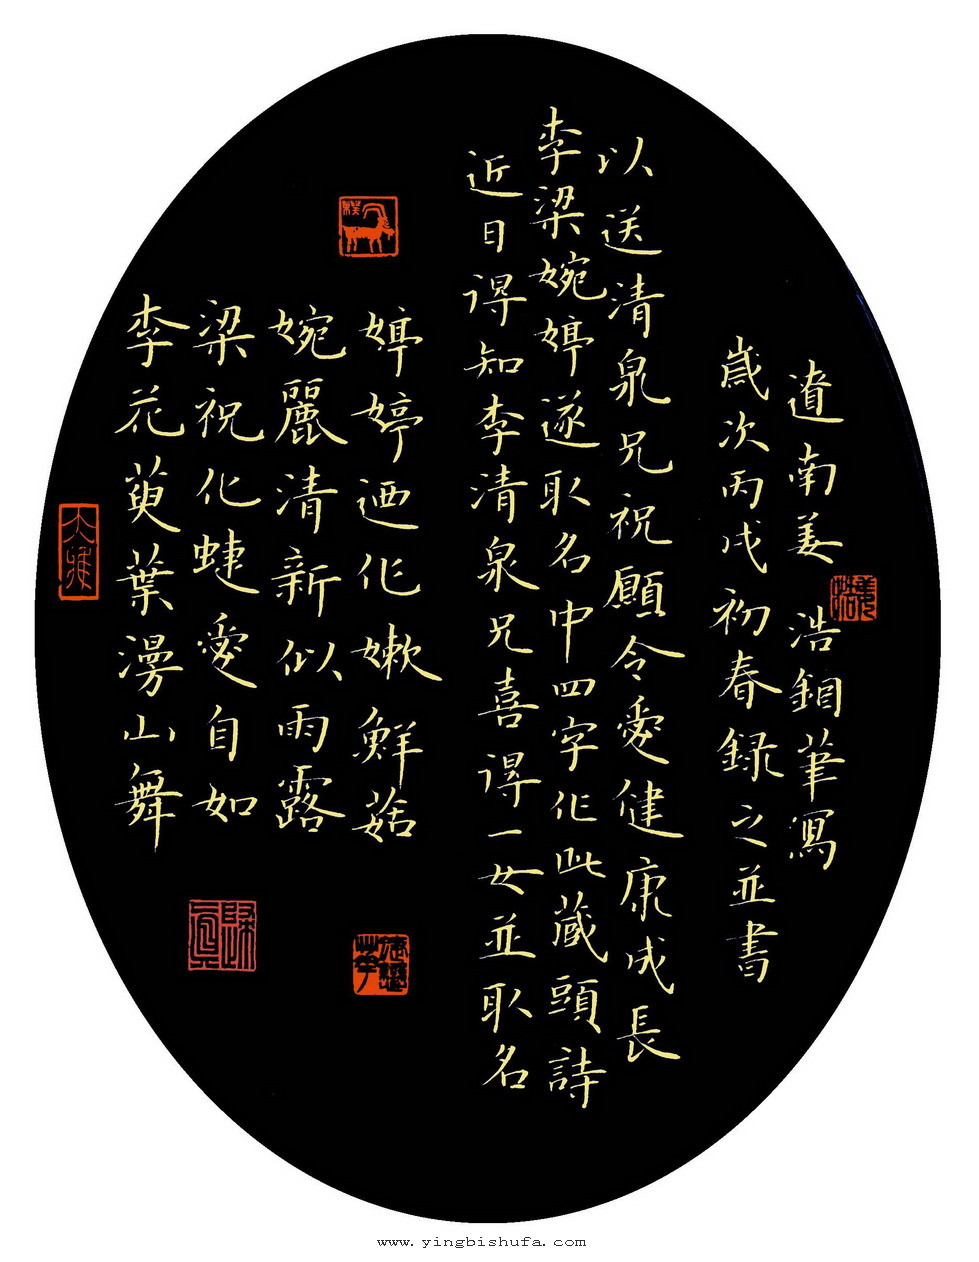 李花萸葉漫山舞
梁祝化蜨愛自如
婉麗清新似雨露
婷婷迺作嫩鮮菇
近日得知李清泉兄喜得一女並取名
李梁婉婷遂取名中四字作此藏頭詩
以送清泉兄祝願令愛健康成長
歲次丙戌初春録之並書
遼南姜 浩鋼筆寫
大雅
姜浩
www.yingbishufa.com